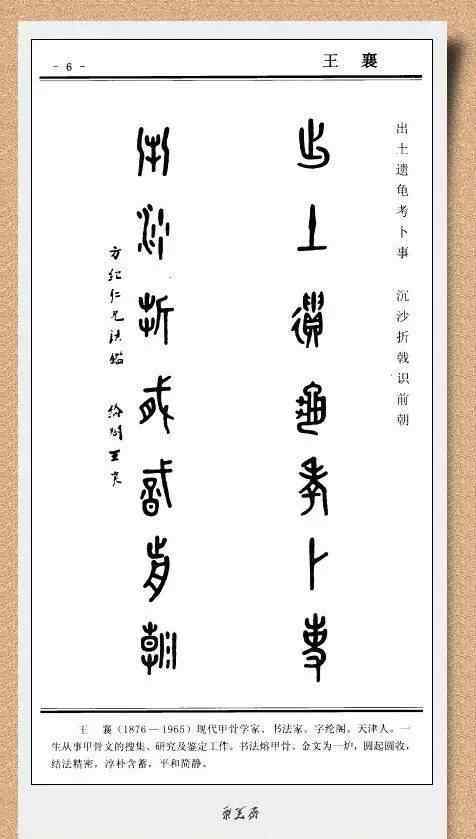 - 6 -
王 襄
出土遗龟考卜事 沉沙折戟识前朝
出土遗龟考卜事
沉沙折戟识前朝
方纪仁兄法鉴 纶阁王襄
王 襄(1876—1965)现代甲骨学家、书法家。字纶阁。天津人。一
生从事甲骨文的搜集、研究及鉴定工作。书法熔甲骨、金文为一炉,圆起圆收,
结法精密,淳朴含蓄,平和简静。